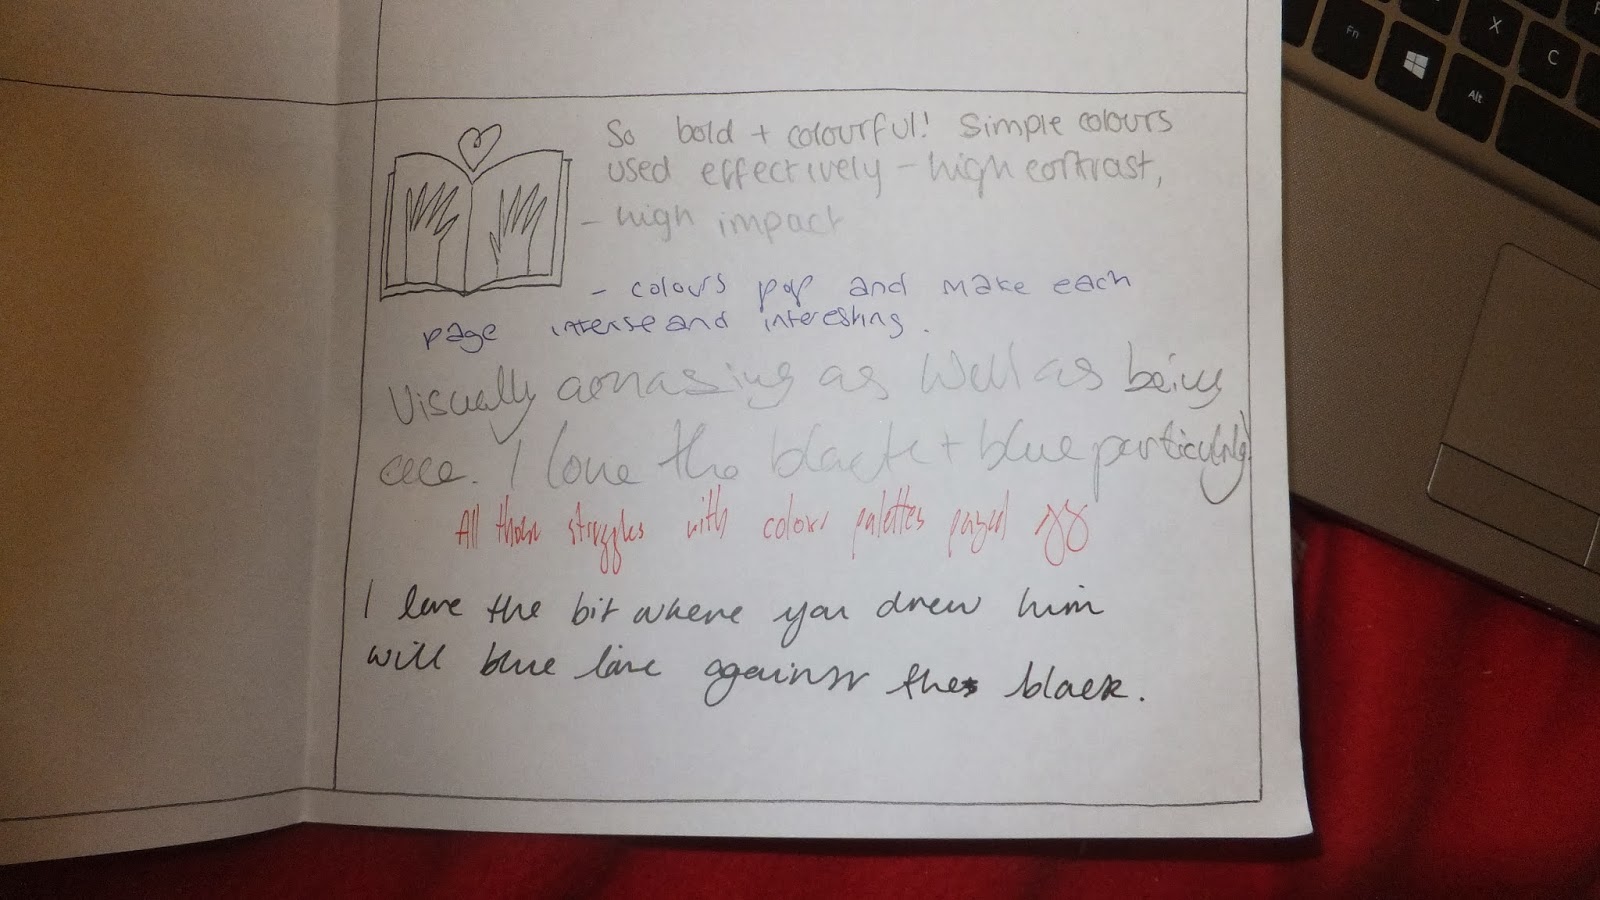 So bold + colourful! Simple colours
used effectively - high contrast,
- high impact
- colours pop and make each
page intense and interesting.
Visually amasing as well as being
I love the black + blue particularly
All those struggles with colour palettes payed
I love the bit where you drew him
will blue line against the black.
Fn
Alt
X
C